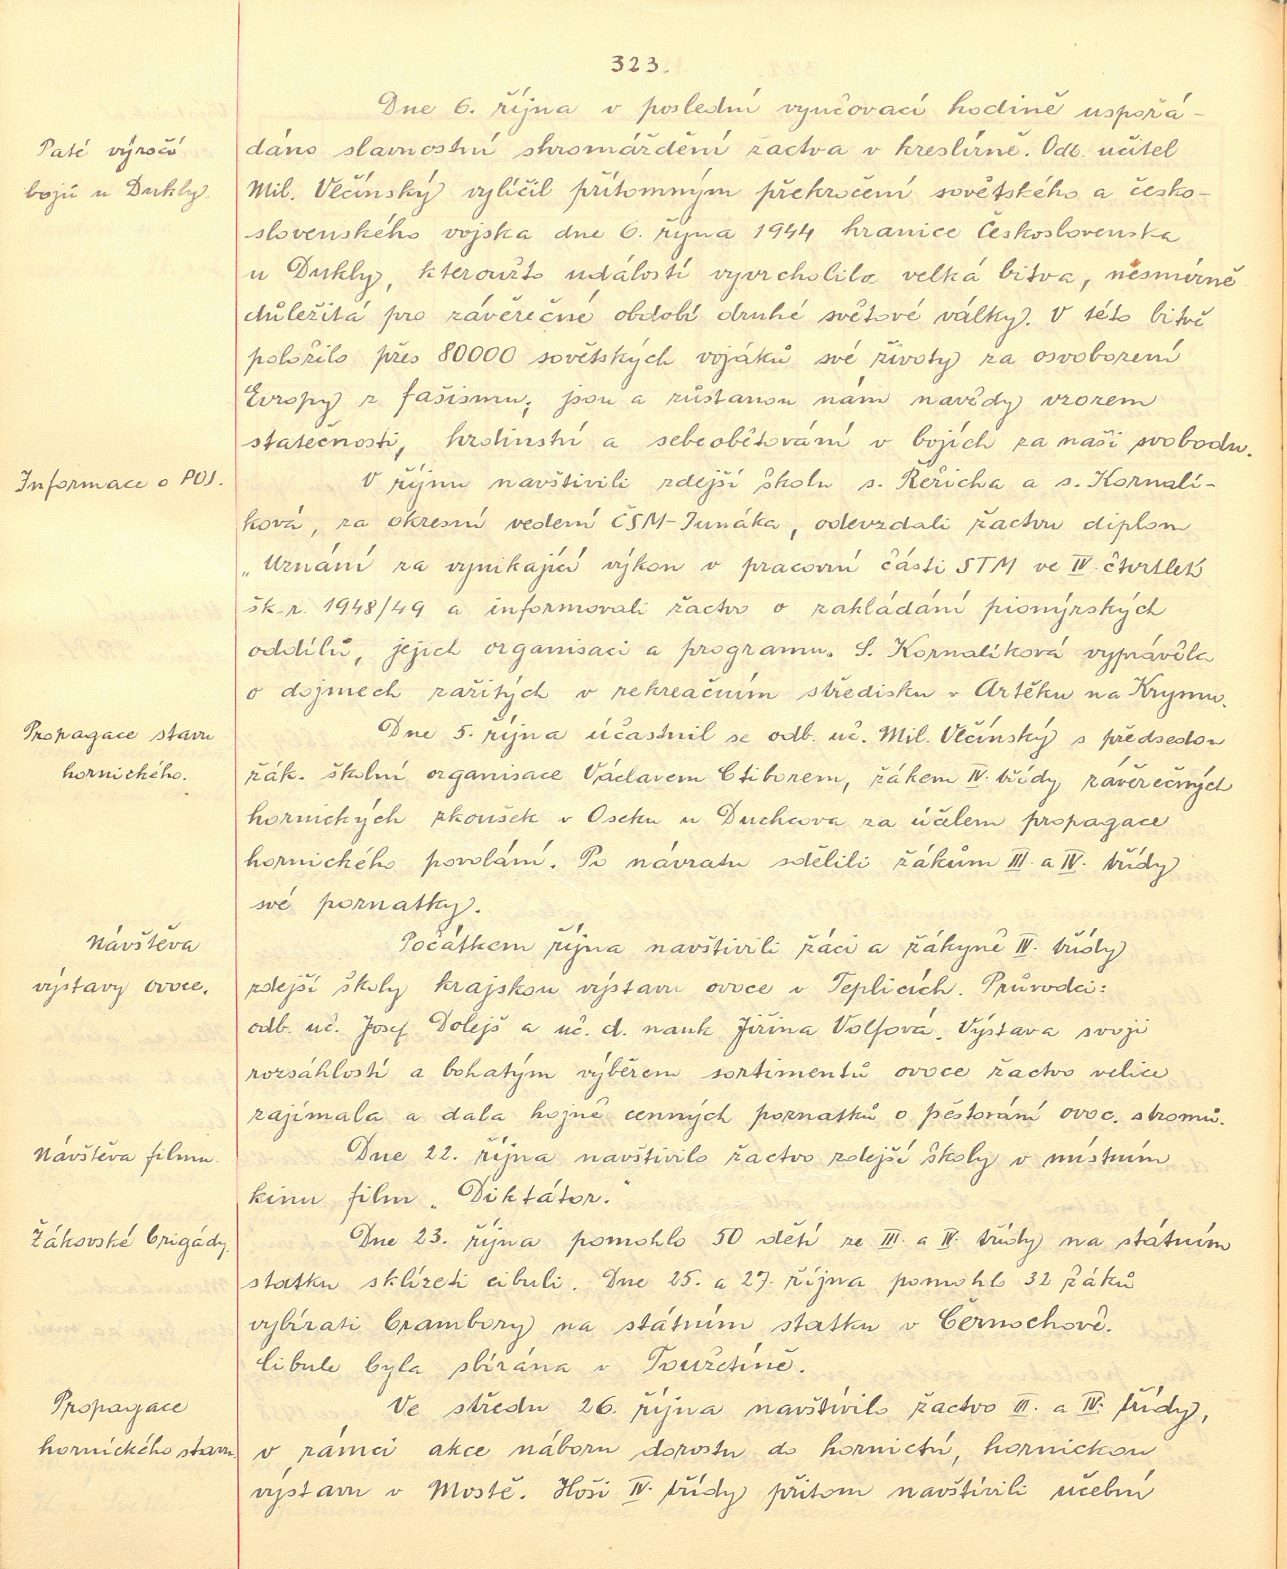 323.
Dne 6. října v poslední vyučovací hodině uspořá-
Páté výročí
dáno slavnostní shromáždění žactva v kreslírně. Odb. učitel
bojů u Dukly.
Mil. Vlčínský vylíčil přítomným překročení sovětského a česko-
slovenského vojska dne 6. října 1944 hranice Československa
u Dukly, kteroužto událostí vyvrcholila velká bitva, nesmírně
důležitá pro závěrečné období druhé světové války. V této bitvě
položilo přes 80000 sovětských vojáků své životy za osvobození
Evropy z fašismu; jsou a zůstanou nám navždy vzorem
statečnosti, hrdinství a sebeobětování v bojích za naši svobodu.
Informace o POJ.
V říjnu navštívili zdejší školu s. Řeřicha a s. Kornalí-
ková, za okresní vedení ČSM-Junáka, odevzdali žactvu diplom
„Uznání za vynikající výkon v pracovní části STM ve IV. čtvrtletí
šk. r. 1948/49 a informovali žactvo o zakládání pionýrských
oddílů, jejich organisaci a programu. S. Kornalíková vyprávěla
o dojmech zažitých v rekreačním středisku v Artěku na Krymu.
Propagace stavu
hornického.
Dne 5. října účastnil se odb. uč. Mil. Vlčínský s předsedou
žák. školní organisace Václavem Ctiborem, žákem IV. třídy závěrečných
hornických zkoušek v Oseku u Duchcova za účelem propagace
hornického povolání. Po návratu sdělili žákům III. a IV. třídy
své poznatky.
Návštěva
výstavy ovoce.
Počátkem října navštívili žáci a žákyně IV. třídy
zdejší školy krajskou výstavu ovoce v Teplicích. Průvodci:
odb. uč. Josef Dolejš a uč. d. nauk Jiřina Volfová. Výstava svojí
rozsáhlostí a bohatým výběrem sortimentů ovoce žactvo velice
zajímala a dala hojně cenných poznatků o pěstování ovoc. stromů.
Návštěva filmu.
Dne 22. října navštívilo žactvo zdejší školy v místním
kinu film „Diktátor.“
Žákovské brigády.
Dne 23. října pomohlo 50 dětí ze III. a IV. třídy na státním
statku sklízeti cibuli. Dne 25. a 27. října pomohlo 32 žáků
vybírati brambory na státním statku v Černochově.
Cibule byla sbírána v Toužetíně.
Propagace
hornického stavu.
Ve středu 26. října navštívilo žactvo III. a IV. třídy,
v rámci akce náboru dorostu do hornictví, hornickou
výstavu v Mostě. Hoši IV. třídy přitom navštívili učební